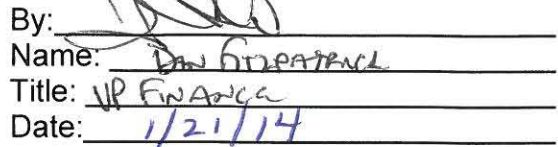 By:
Name: DAN FITZPATRICK
Title: VP FINANCE
Date: 1/21/14